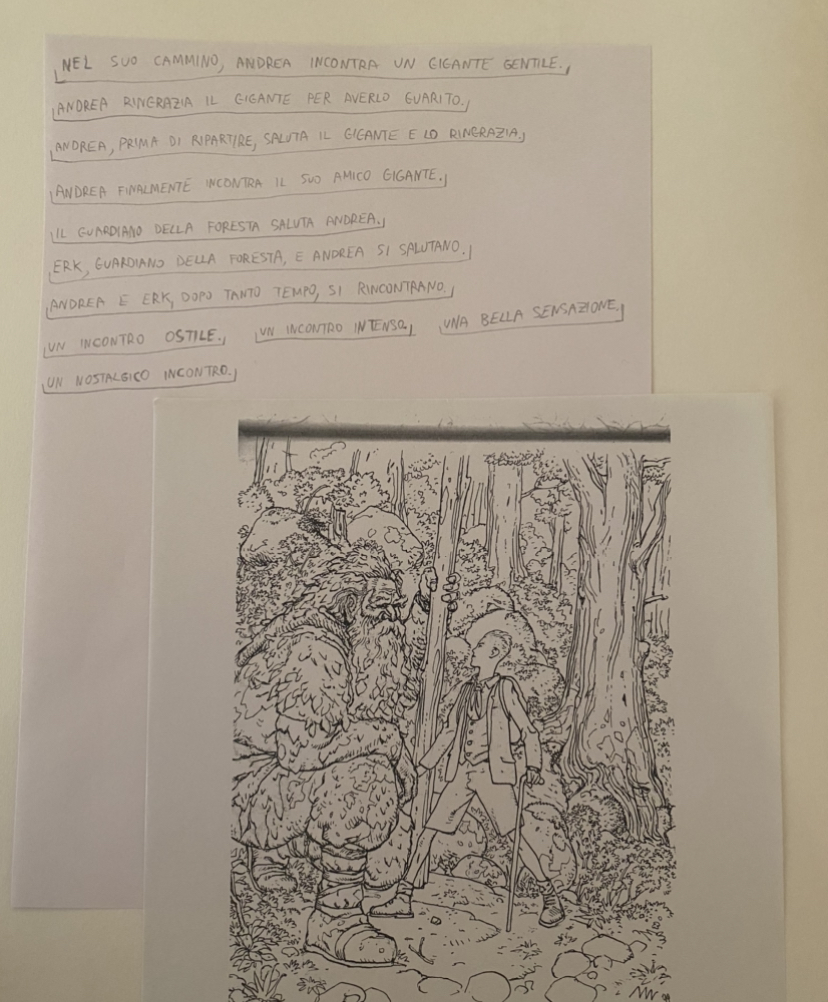 NEL SUO CAMMINO, ANDREA INCONTRA UN GIGANTE GENTILE.
ANDREA RINGRAZIA IL GIGANTE PER AVERLO GUARITO.
ANDREA, PRIMA DI RIPARTIRE, SALUTA IL GIGANTE E LO RINGRAZIA.
ANDREA FINALMENTE INCONTRA IL SUO AMICO GIGANTE.
IL GUARDIANO DELLA FORESTA SALUTA ANDREA.
ERK, GUARDIANO DELLA FORESTA, E ANDREA SI SALUTANO.
ANDREA E ERK, DOPO TANTO TEMPO, SI RINCONTRANO.
UN INCONTRO OSTILE. UN INCONTRO INTENSO. UNA BELLA SENSAZIONE.
UN NOSTALGICO INCONTRO.